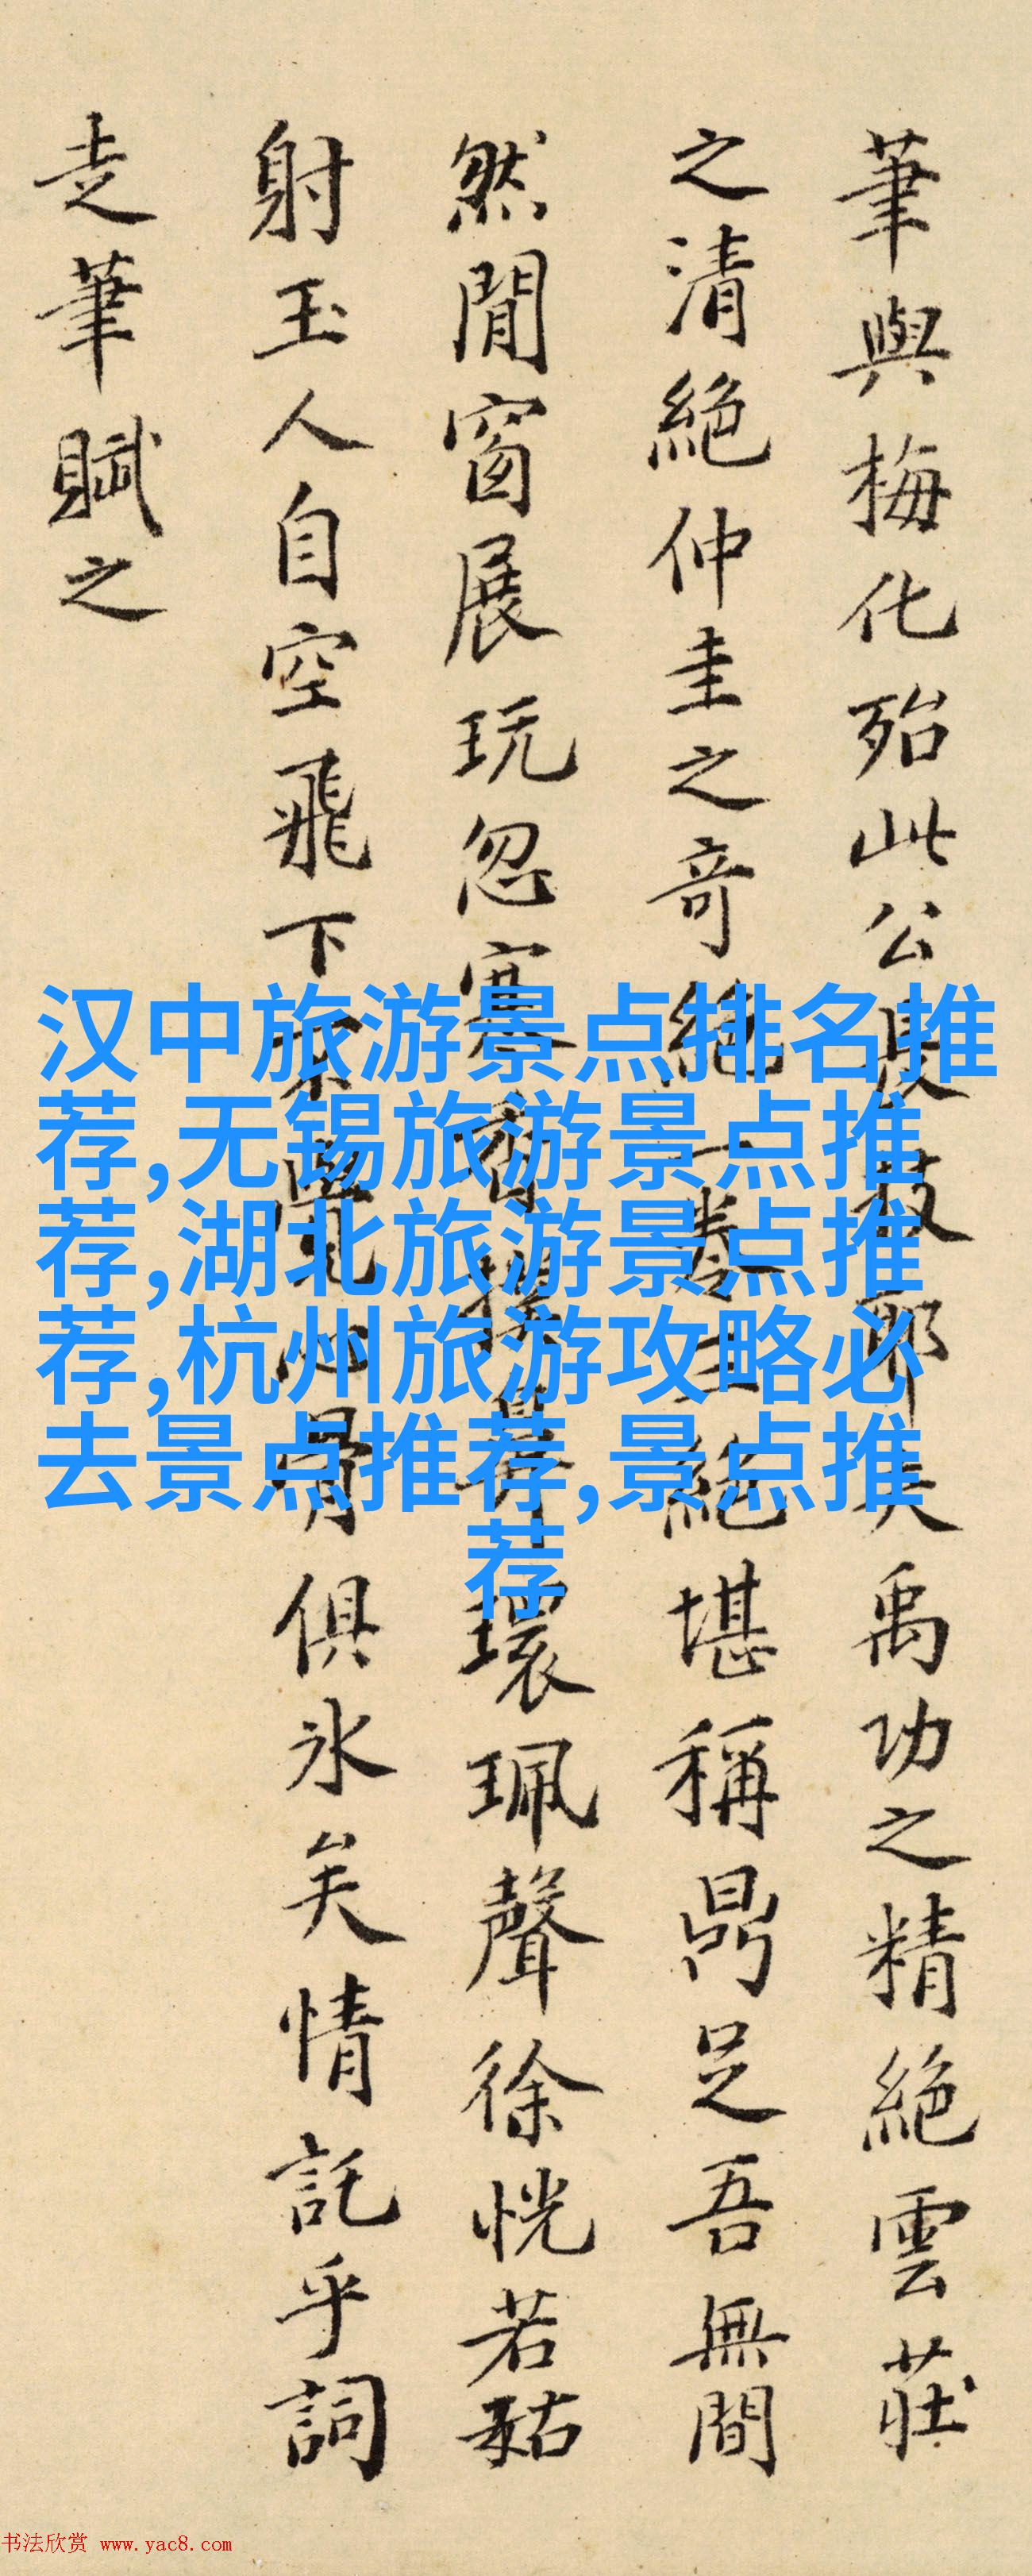 筆與梅化殆此公長技耶夫禹功之精絕雲莊
之清絕仲圭之奇絕一卷三絕堪稱鼎足吾無間
然閒窗展玩忽寒香撲鼻環珮聲徐恍若藐姑
射玉人自空飛下不覺心骨俱冰矣情託乎詞
走筆賦之
汉中旅游景点排名推
荐,无锡旅游景点推
荐,湖北旅游景点推
荐,杭州旅游攻略必
去景点推荐,景点推
荐
书法欣赏 www.yac8.com